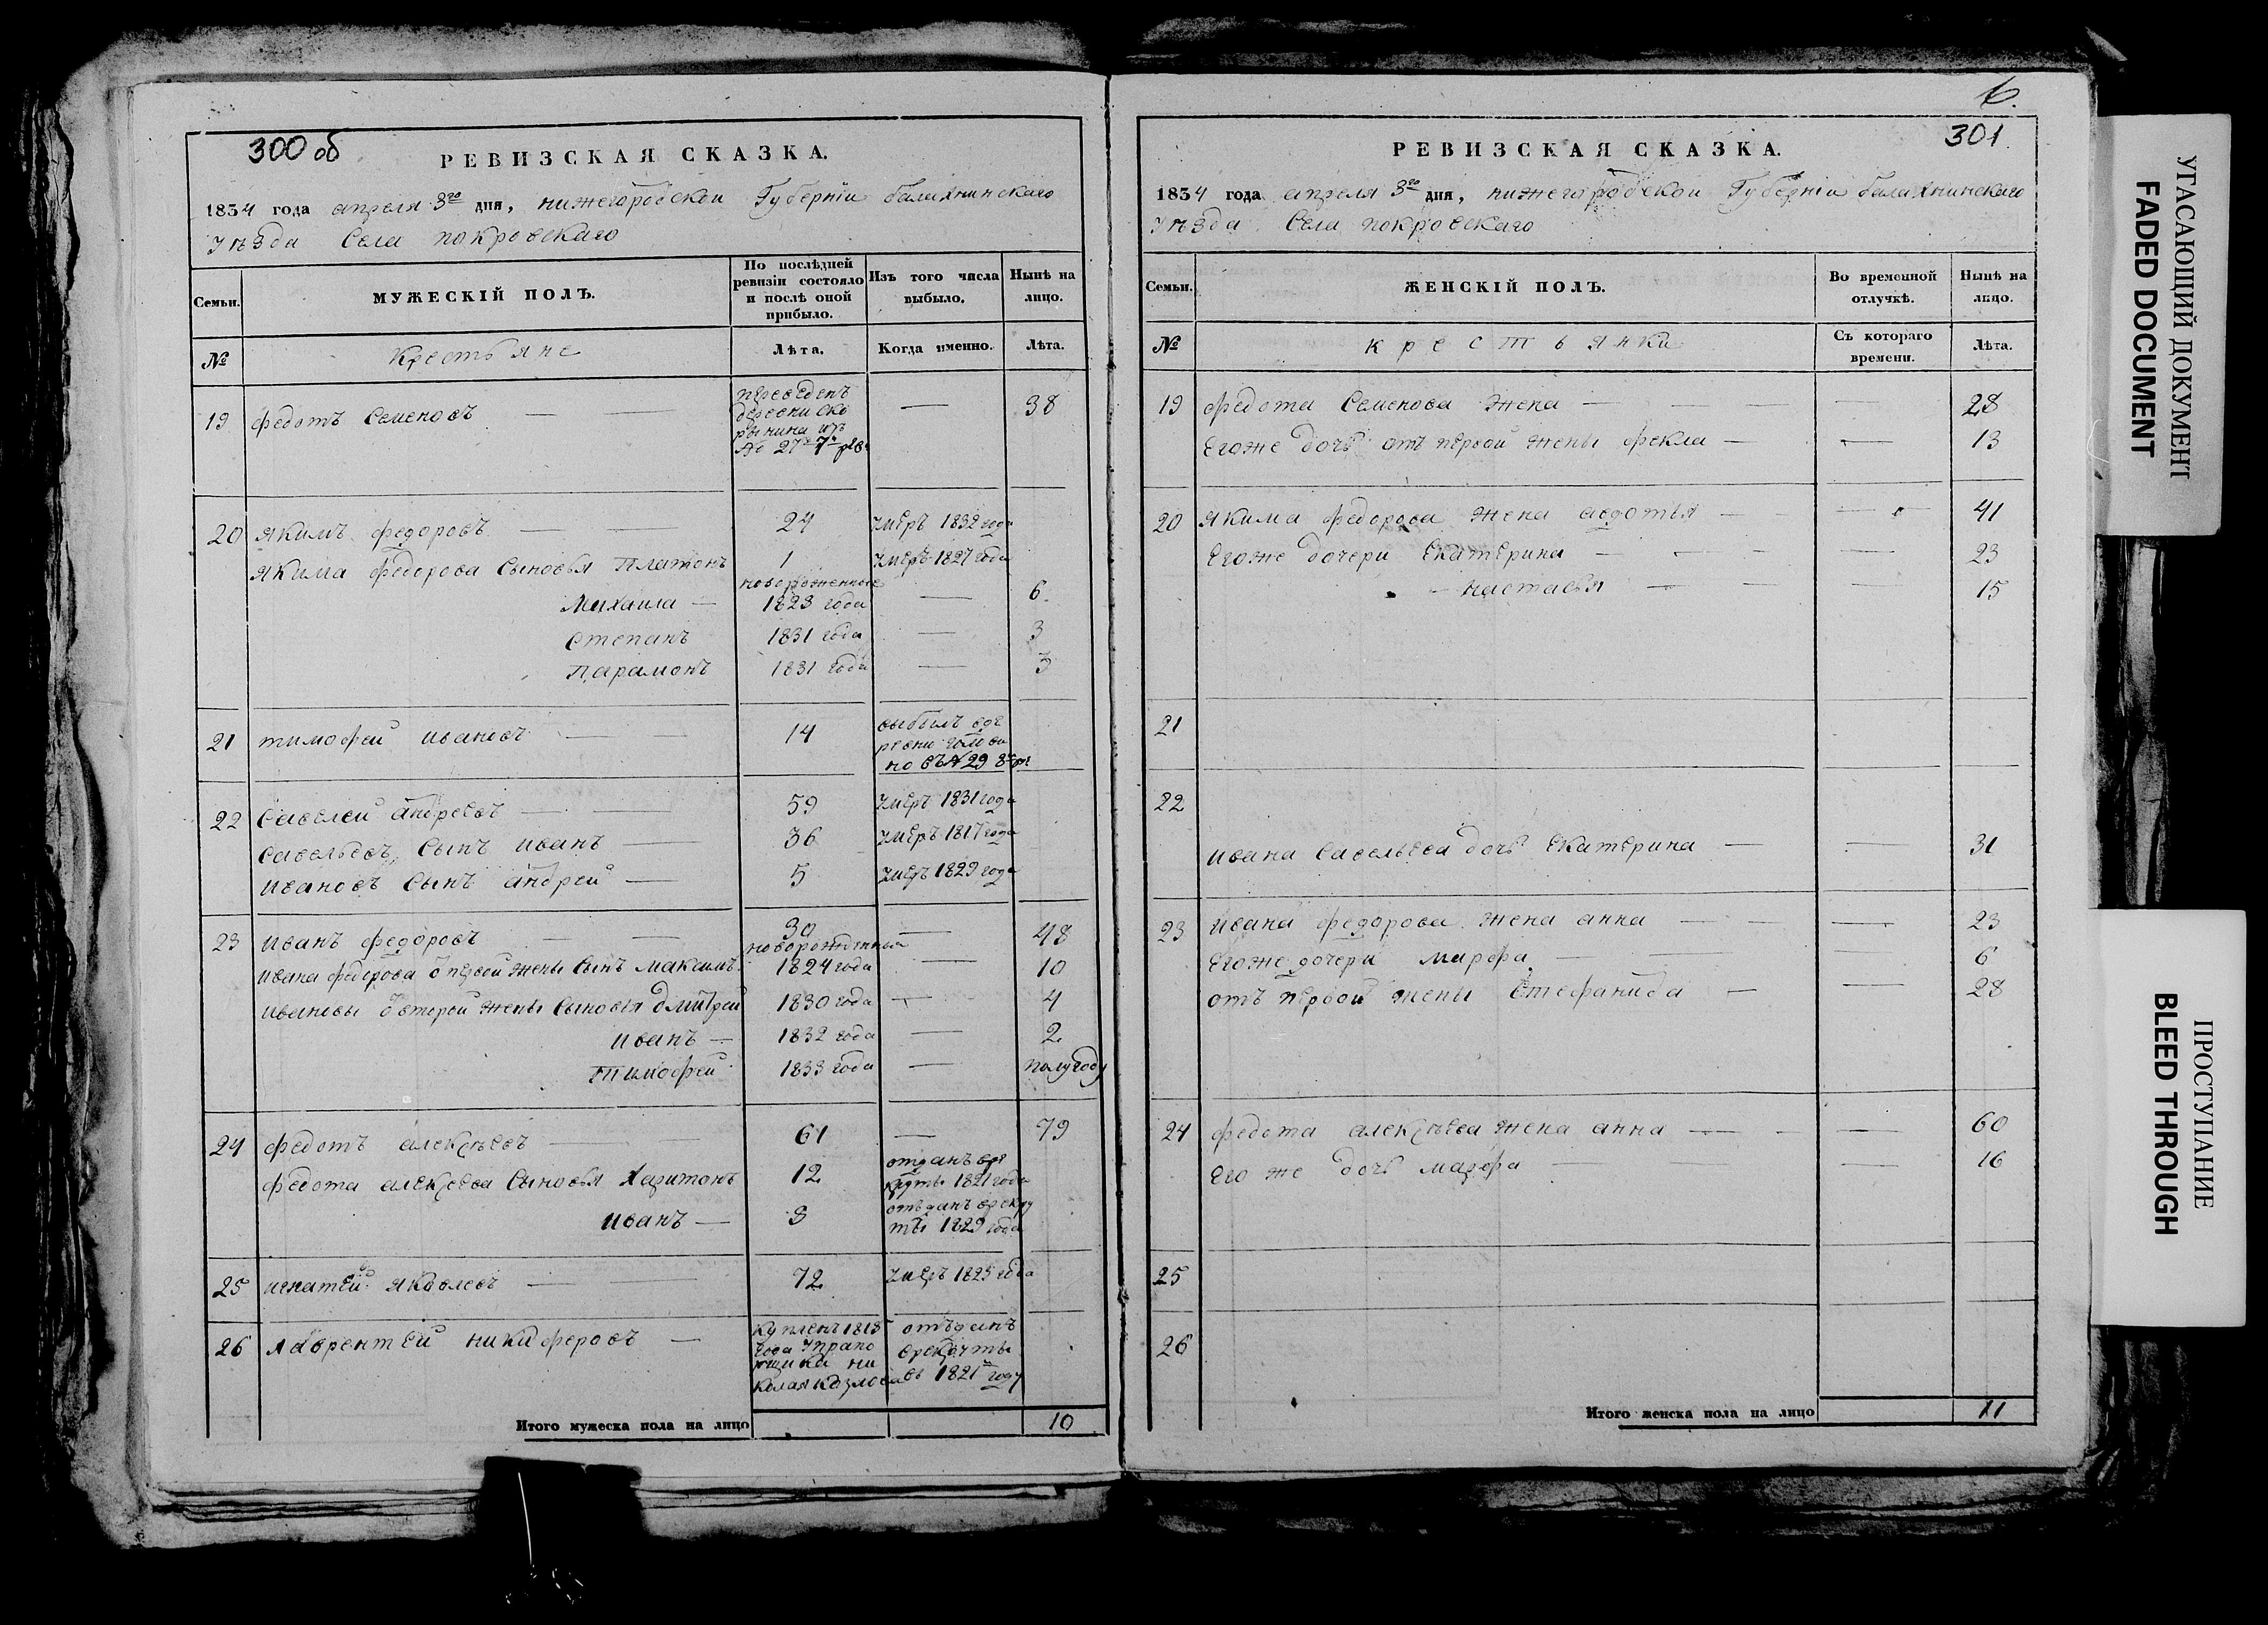 300 об
РЕВИЗСКАЯ СКАЗКА.
1834 года апреля 3го дня, нижегородской Губернiи балахнинскаго
уѣзда Села покровскаго
Семьи.
МУЖЕСКIЙ ПОЛЪ.
По послѣдней ревизiи состояло и послѣ оной прибыло.
Изъ того числа выбыло.
Нынѣ на лицо.
№
Крестьяне
Лѣта.
Когда именно.
Лѣта.
19 федотъ Семеновъ — переведенъ деревни ско рынина изъ № 27 7 рев: — 38
20 якимъ федоровъ — 24 умеръ 1832 года
якима федорова Сыновья Платонъ 1 умеръ 1827 года
новорожденные
Михаила — 1828 года — 6.
Степанъ 1831 года — 3
Парамонъ 1831 года — 3
21 тимофей ивановъ — 14 выбылъ вде ревню голови но въ № 29 8
22 Савелей андреевъ — 59 умеръ 1831 года
Савельевъ Сынъ иванъ — 36 умеръ 1817 года
ивановъ Сынъ андрей — 5 умеръ 1829 года
23 иванъ федоровъ — 30 — 48
новорожденныя
ивана федорова о первой жены Сынъ максимъ 1824 года — 10
ивановы о второй жены Сыновья дмитрей 1830 года — 4
иванъ — 1832 года — 2
Тимофей 1833 года — полугоду
24 федотъ алексѣевъ — 61 — 79
федота алексеева Сыновья харитонъ 12 отданъ вре круты 1821 года
иванъ — 8 отъданъ врекру ты 1829 года
25 игнатей яковлевъ — 72 умеръ 1825 года
26 лаврентей никифоровъ — купленъ 1818 года Упрапо рщика ни колая козлова отъданъ врекруты въ 1821 году
Итого мужеска пола на лицо 10
6.
301
РЕВИЗСКАЯ СКАЗКА.
1834 года апреля 3го дня, нижегородской Губернiи балахнинскаго
уѣзда Села покровскаго
Семьи.
ЖЕНСКIЙ ПОЛЪ.
Во временной отлучкѣ.
Нынѣ на лицо.
№
крестьянки
Съ котораго времени.
Лѣта.
19 федота Семенова жена — — 28
Егоже дочь отъ первой жены фекла — — 13
20 якима федорова жена авдотья — — 41
Егоже дочери Екатерина — — 23
настасья — — 15
21
22
ивана Савельева дочь Екатерина — — 31
23 ивана федорова жена анна — — 23
Егоже дочери марфа — — 6
отъ первой жены Стефанида — — 28
24 федота алексѣева жена анна — — 60
Его же дочь марфа — — 16
25
26
Итого женска пола на лицо 11
УГАСАЮЩИЙ ДОКУМЕНТ
FADED DOCUMENT
ПРОСТУПАНИЕ
BLEED THROUGH